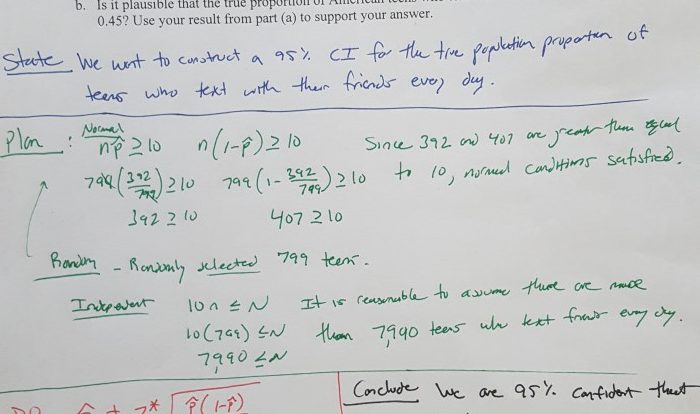 b. Is it plausible that the true proportion of American teens
0.45? Use your result from part (a) to support your answer.
State We want to construct a 95% CI for the true population proportion of
teens who text with their friends every day.
Plan: Normal
np̂ ≥ 10 n(1-p̂) ≥ 10 Since 392 and 407 are greater than equal
799(392/799) ≥ 10 799(1-392/799) ≥ 10 to 10, normal conditions satisfied.
392 ≥ 10 407 ≥ 10
Random - Randomly selected 799 teens.
Indepedent 10n ≤ N It is reasonable to assume there are more
10(799) ≤ N than 7,990 teens who text friends every day.
7,990 ≤ N
p̂ ± z* √p̂(1-p̂) Conclude We are 95% confident that